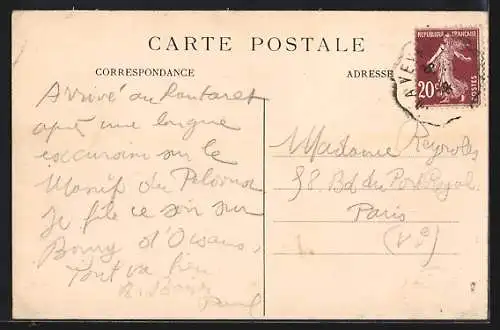 CARTE POSTALE
CORRESPONDANCE
ADRESSE
REPUBLIQUE FRANÇAISE
20c
POSTES
Arrivé au Lautaret
après une longue
excursion sur le
Massif du Pelvoux
je file ce soir sur
Bourg d'Oisans.
Tout va bien
Paul
Madame Reyrolles
58. Bd du Port Royal
Paris
(Ve)